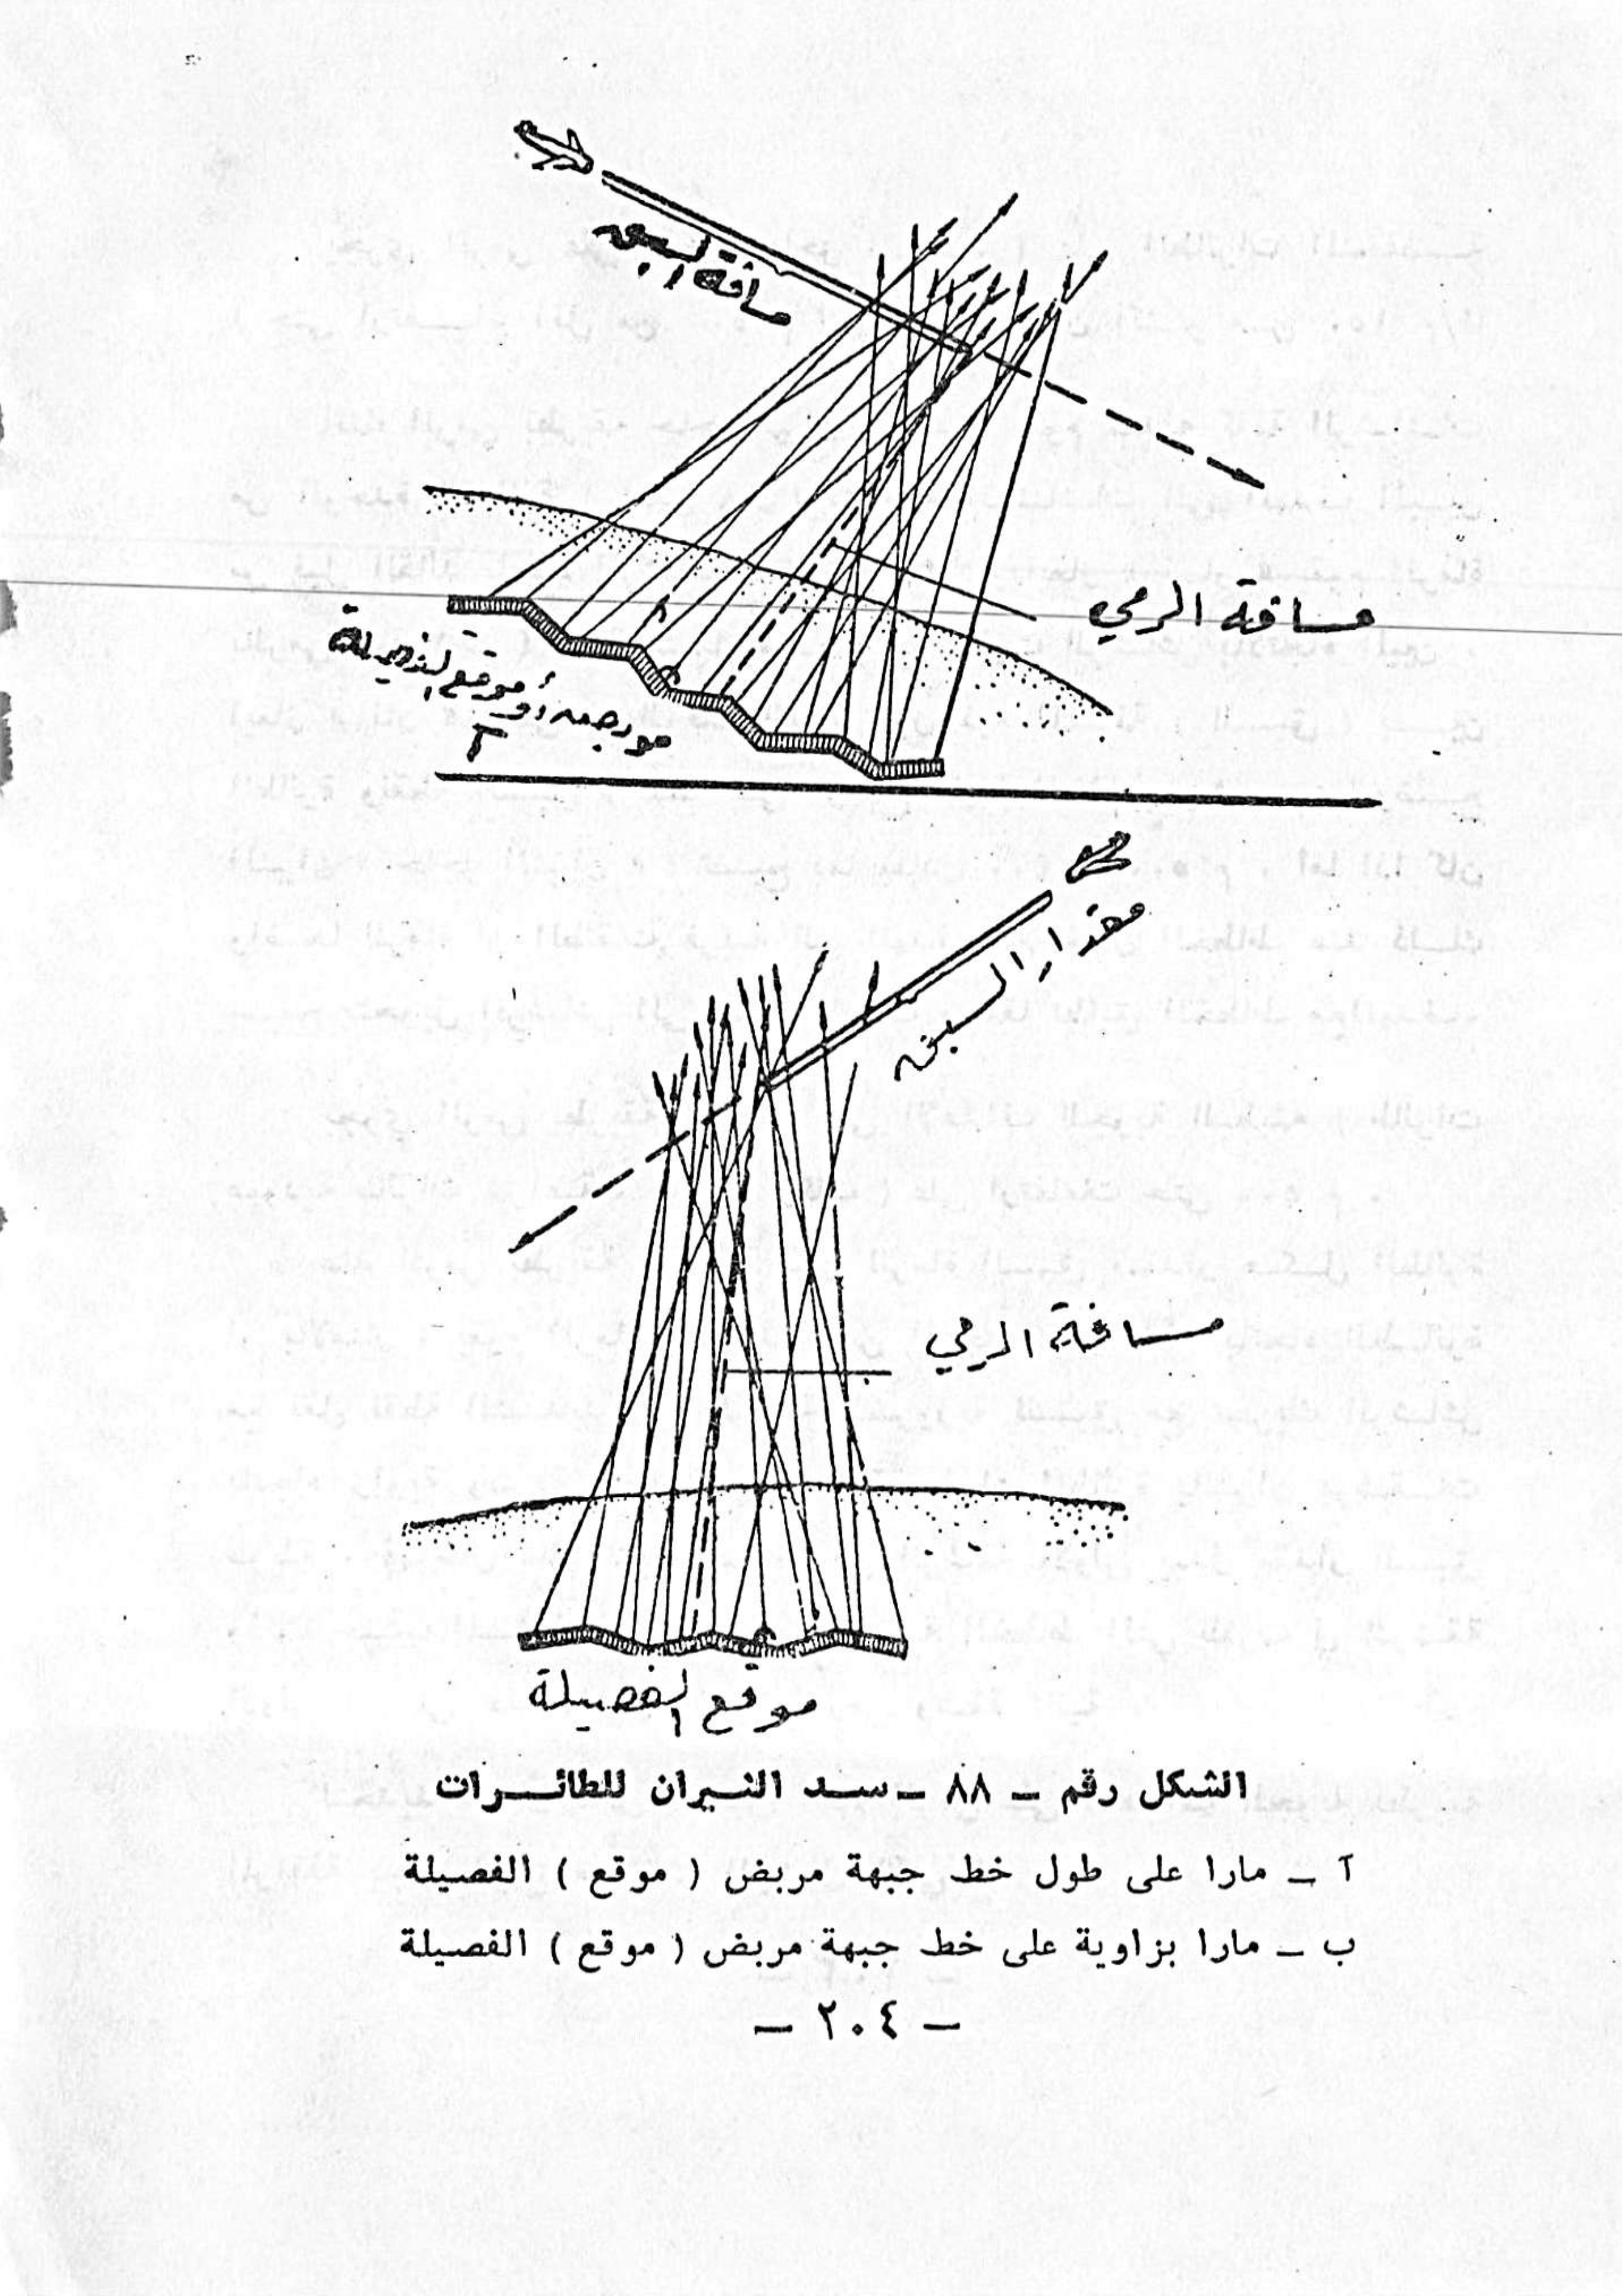 مسافة السبق
مسافة الرمي
أو موقع الفصيلة
آ
مقدار السبق
مسافة الرمي
موقع الفصيلة
الشكل رقم – ٨٨ – سد النيران للطائرات
آ – مارا على طول خط جبهة مربض ( موقع ) الفصيلة
ب – مارا بزاوية على خط جبهة مربض ( موقع ) الفصيلة
– ٢٠٤ –